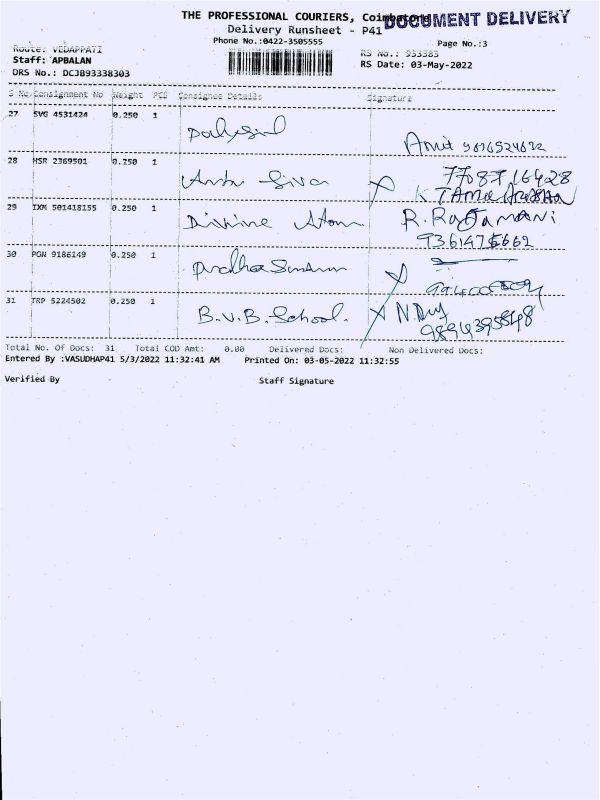 THE PROFESSIONAL COURIERS, Coimbatore
DOCUMENT DELIVERY
Delivery Runsheet - P41
Phone No.:0422-3505555
Page No.:3
Route: VEDAPPATI
RS No.: 933383
Staff: APBALAN
RS Date: 03-May-2022
DRS No.: DCJB93338303
S No Consignment No Weight PCS Consignee Details Signature
27 SVG 4531424 0.250 1
Amit
28 HSR 2369501 0.250 1 Siva
29 IXM 501418155 0.250 1 Divine Atom R. Rajamani
30 PON 9186149 0.250 1
31 TRP 5224502 0.250 1 B.V.B. School.
Total No. Of Docs: 31 Total COD Amt: 0.00 Delivered Docs: Non Delivered Docs:
Entered By :VASUDHAP41 5/3/2022 11:32:41 AM Printed On: 03-05-2022 11:32:55
Verified By Staff Signature